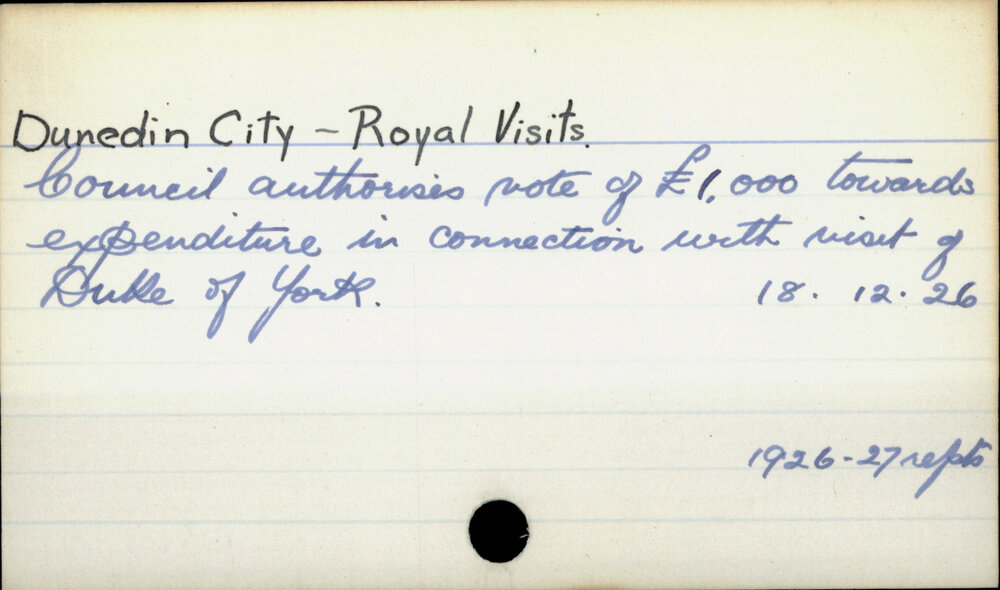 Dunedin City - Royal Visits.
Council authorises vote of £1,000 towards
expenditure in connection with visit of
Duke of York. 18. 12. 26
1926-27 repts